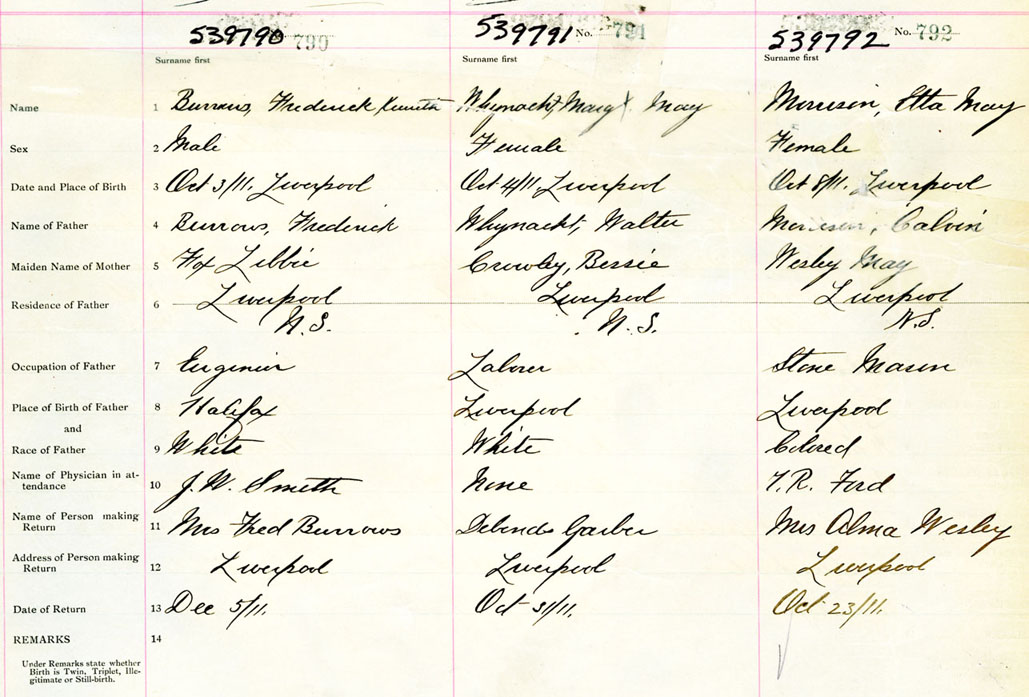 539790 790 539791 No. 791 539792 No. 792
Surname first Surname first Surname first
Name 1 Burrows, Frederick, Whynacht, Mary May Morrison, Etta May
Sex 2 Male Female Female
Date and Place of Birth 3 Oct 3/11. Liverpool Oct 4/11 Liverpool Oct 8/11. Liverpool
Name of Father 4 Burrows, Frederick Whynacht, Walter Morrison, Calvin
Maiden Name of Mother 5 Fox Libbie Crowley, Bessie Wesley May
Residence of Father 6 Liverpool Liverpool Liverpool
N.S. N.S. N.S.
Occupation of Father 7 Enginier Laborer Stone Mason
Place of Birth of Father 8 Halifax Liverpool Liverpool
and
Race of Father 9 White White Colored
Name of Physician in at-
tendance 10 J.W. Smith None T.R. Ford
Name of Person making
Return 11 Mrs Fred Burrows Mrs Alma Wesley
Address of Person making
Return 12 Liverpool Liverpool Liverpool
Date of Return 13 Dec 5/11. Oct 31/11. Oct 23/11.
REMARKS 14
Under Remarks state whether
Birth is Twin, Triplet, Ille-
gitimate or Still-birth.